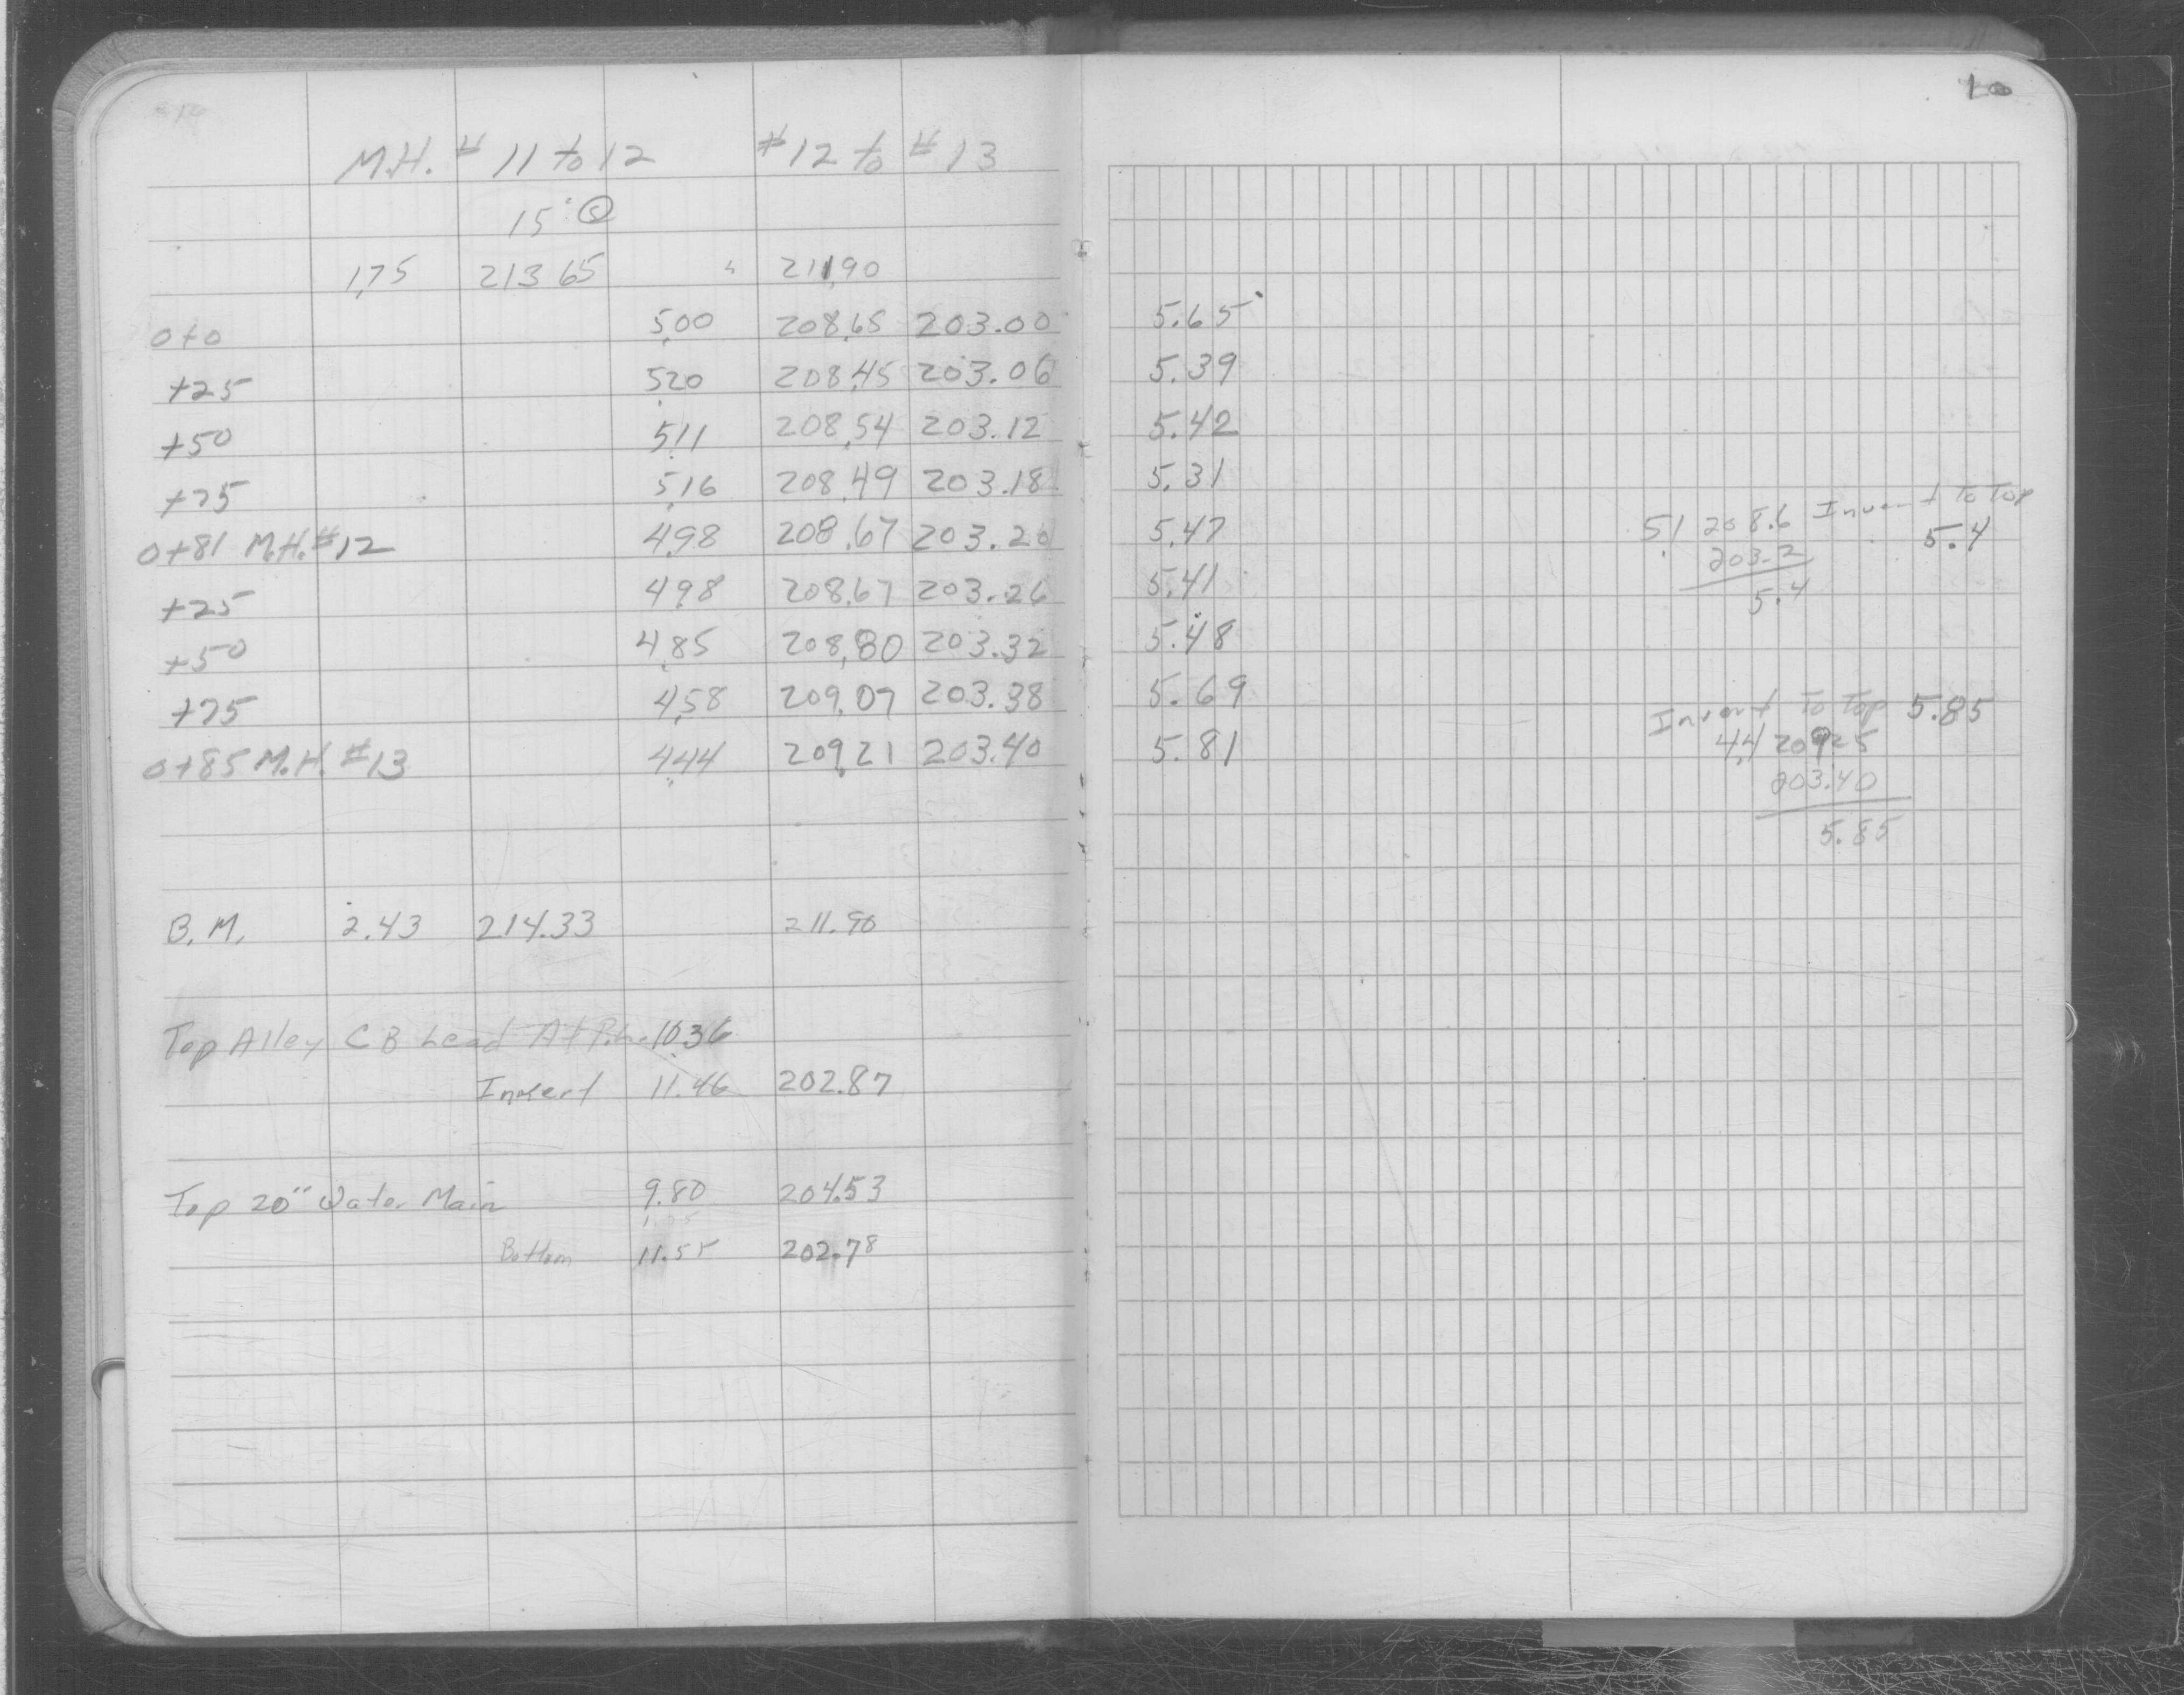 10
M.H. # 11 to 12 #12 to #13
15" Ⓢ
1.75 213.65 211.90
0+0 5.00 208.65 203.00 5.65
+25 5.20 208.45 203.06 5.39
+50 5.11 208.54 203.12 5.42
+75 5.16 208.49 203.18 5.31
0+81 M.H. #12 4.98 208.67 203.20 5.47
+25 4.98 208.67 203.26 5.41
+50 4.85 208.80 203.32 5.48
+75 4.58 209.07 203.38 5.69
0+85 M.H. #13 4.44 209.21 203.40 5.81
B.M. 2.43 214.33 211.90
Top Alley C B Lead At 10.36
Invert 11.46 202.87
Top 20" Water Main 9.80 204.53
Bottom 11.55 202.78
5.1 208.6 Invert To Top
203.2 5.4
5.4
Invert To Top 5.85
4.4 209.25
203.40
5.85